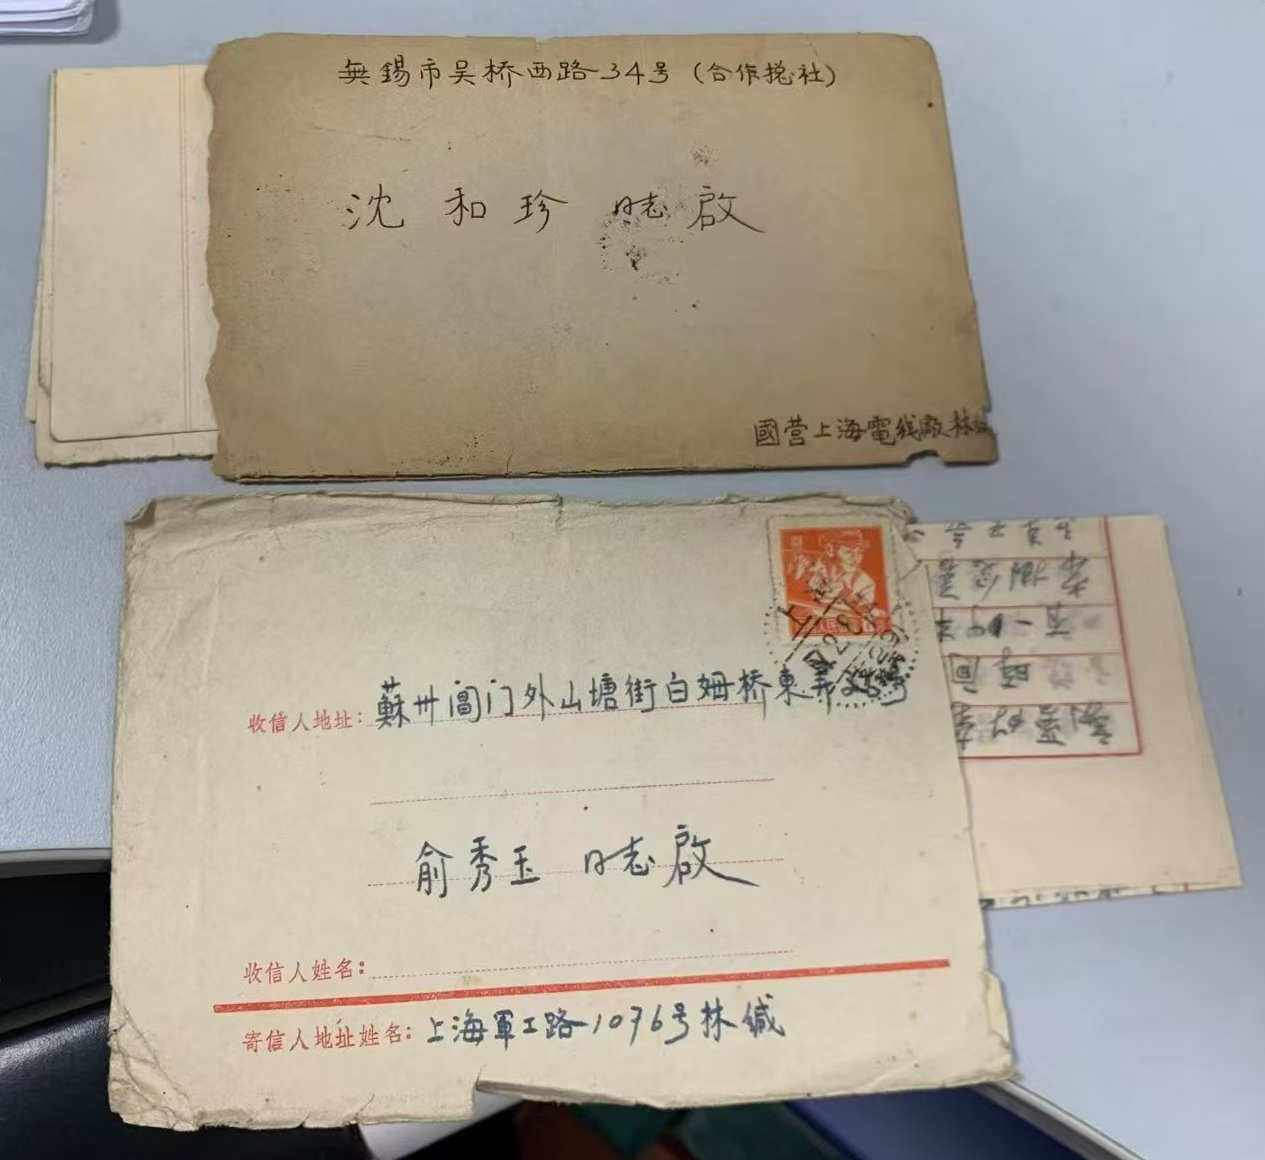 無錫市吴桥西路34号(合作总社)
沈和珍 同志 啟
國营上海電线厰林缄
收信人地址:蘇州阊门外山塘街白姆桥東
俞秀玉 同志 啟
收信人姓名:
寄信人地址姓名:上海軍工路1076号林缄
時间
有一